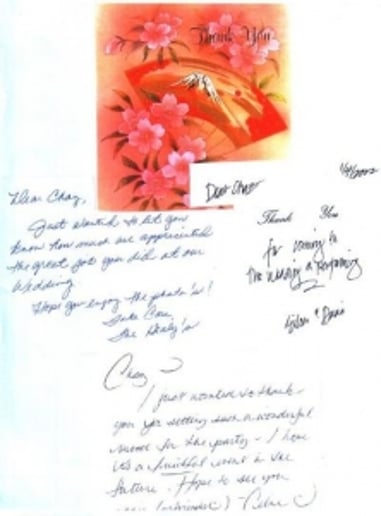 Thank You
Dear Chaz,
Just wanted to let you
know how much we appreciated
the great job you did at our
Wedding.
Hope you enjoy the photo's!
Take Care,
The Healy's
Dear Chaz
Thank You
for coming to
the wedding & performing
Chaz
I just wanted to thank
you for setting such a wonderful
mood for the party - I hope
it's a fruitful event in the
future. Hope to see you